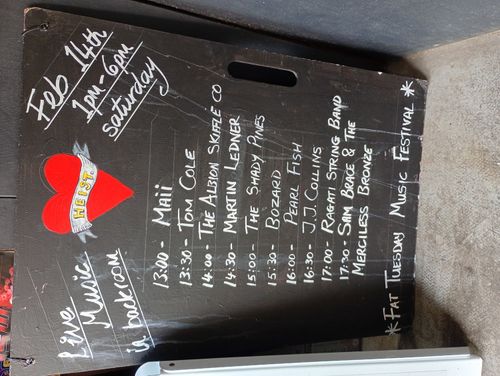 Live
Music
in backroom
HEIST.
Feb 14th
1pm-6pm
Saturday
13:00 - MAii
13:30 - TOM COLE
14:00 - THE ALBION SKIFFLE CO
14:30 - MARTIN LEDNER
15:00 - THE SHADY PINES
15:30 - BOZARD
16:00 - PEARL FISH
16:30 - J.J. COLLINS
17:00 - RAGATI STRING BAND
17:30 - SAM BRACE & THE
MERCILESS BRONZE
* FAT TUESDAY MUSIC FESTIVAL *